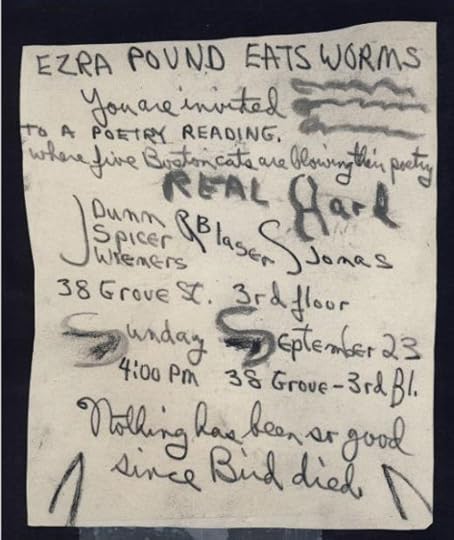 EZRA POUND EATS WORMS
You are invited
TO A POETRY READING.
where five Boston cats are blowing their poetry
REAL Hard
J Dunn
Spicer
J Wieners
R Blaser
S Jonas
38 Grove St. 3rd floor
Sunday September 23
4:00 PM 38 Grove - 3rd Fl.
Nothing has been so good
since Bird died